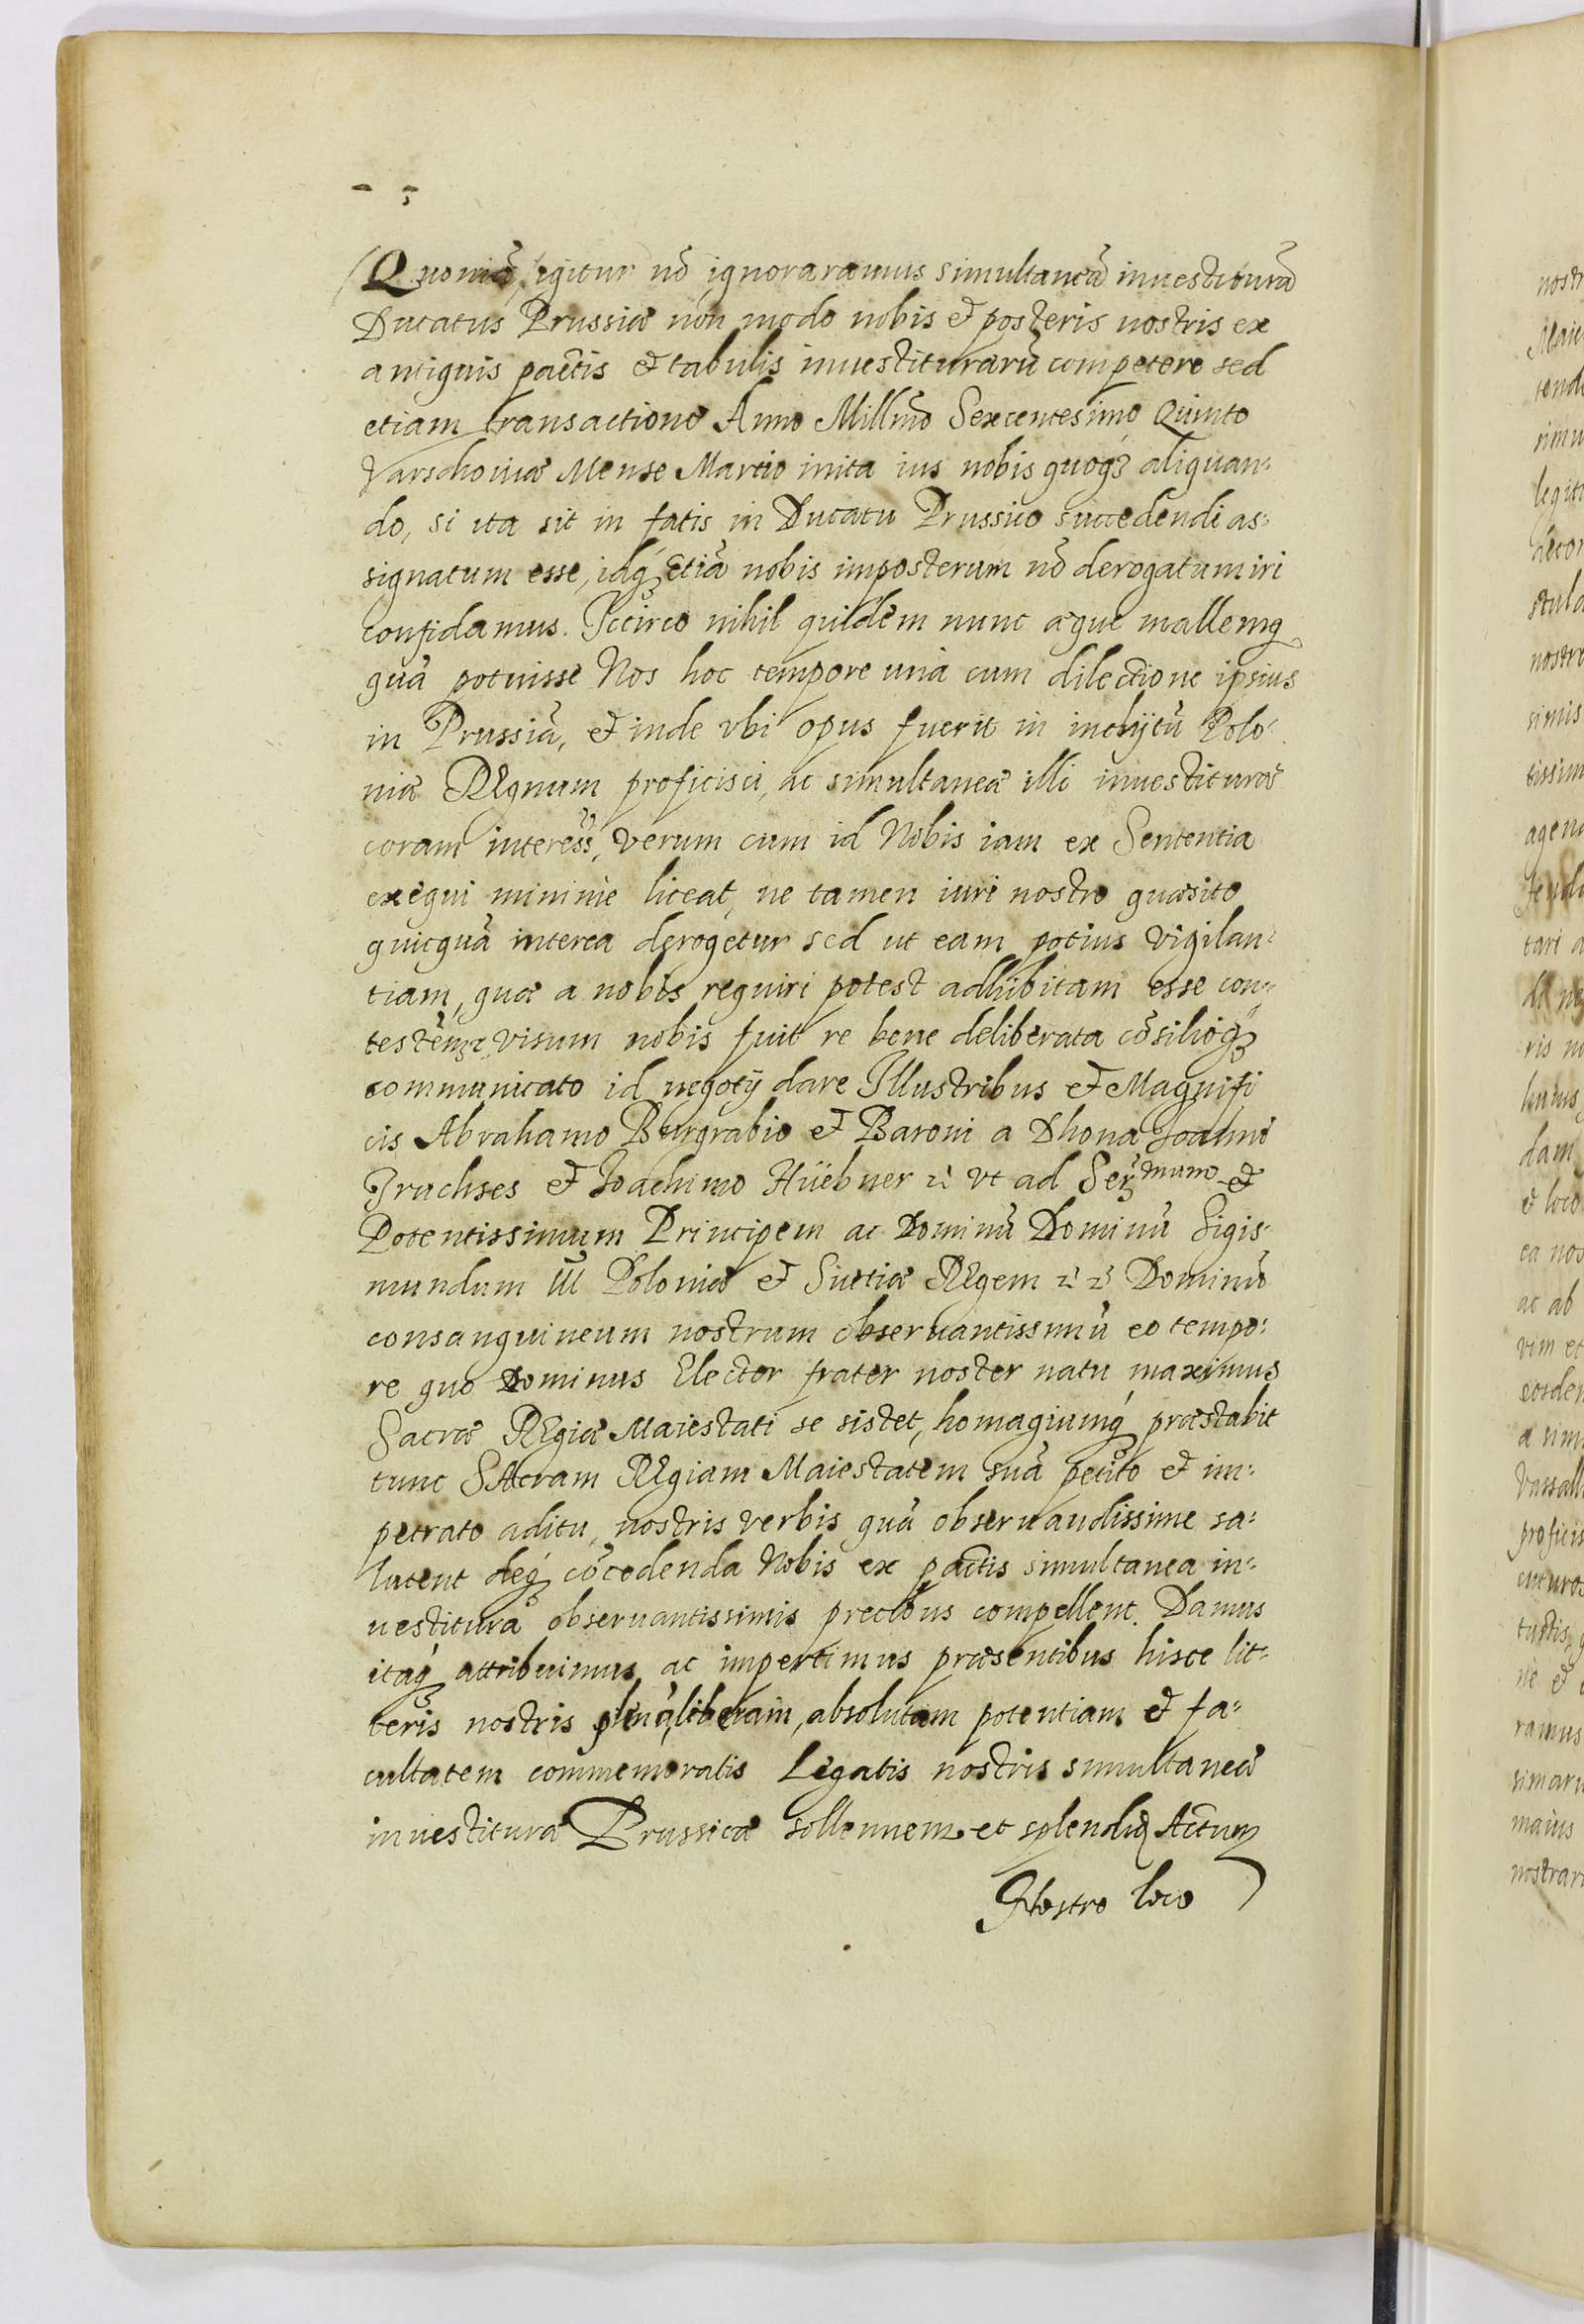 Quoniā igitur nō ignoraramus simultaneā inuestiturā
Ducatus Prussiæ non modo nobis et posteris nostris ex
antiquis pactis et tabulis inuestiturarū competere sed
etiam transactione Anno Millmō Sexcentesimo Quinto
Varschouiæ Mense Martio inita ius nobis quoqꝫ aliquan:
do, si ita sit in fatis in Ducatu Prussiæ succedendi as:
signatum esse, idqꝫ etiā nobis imposterum nō derogatum iri
confidamus. Iccirco nihil quidem nunc æque mallemq
quā potuisse Nos hoc tempore unà cum dilectione ipsius
in Prussiā, et inde vbi opus fuerit in inclytū Polo:
niæ REgnum proficisci, ac simultaneæ illi inuestituræ
coram interesse, verum cum id Nobis iam ex Sententia
exequi minime liceat, ne tamen iuri nostro quæsito
quicquā interea derogetur sed ut eam potius vigilan:
tiam, quæ a nobis requiri potest adhibitam esse con:
testemꝫ visum nobis fuit re bene deliberata cōsilioqꝫ
communicato id negotij dare Illustribus et Magnifi
cis Abrahamo Burgrabio et Baroni a Dhona Joanni
Truchses et Joachimo Hüebner ꝛc vt ad Serꝫmum et
Potentissimum Principem ac Dominū Dominū Sigis:
mundum III Poloniæ et Suetiæ REgem ꝛc ꝛc Dominū
consanguineum nostrum obseruantissimū eo tempo:
re quo Dominus Elector frater noster natu maximus
Sacræ REgiæ Maiestati se sistet, homagiumqꝫ præstabit
tunc SAcram REgiam Maiestatem suā petito et im:
petrato aditu, nostris verbis quā obseruandissime sa:
lutent deqꝫ cōcedenda Nobis ex pactis simultanea in:
uestiturā obseruantissimis precibus compellent. Damus
itaqꝫ attribuimus ac impertimus præsentibus hisce lit:
teris nostris plenā, liberam, absolutam potentiam et fa:
cultatem commemoratis Legatis nostris simultaneæ
inuestituræ Prussicæ sollennem et splendid Actum
Nostro loco